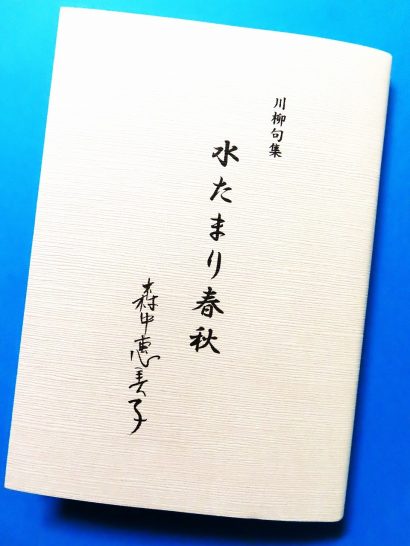 川柳句集
水たまり春秋
森中惠美子